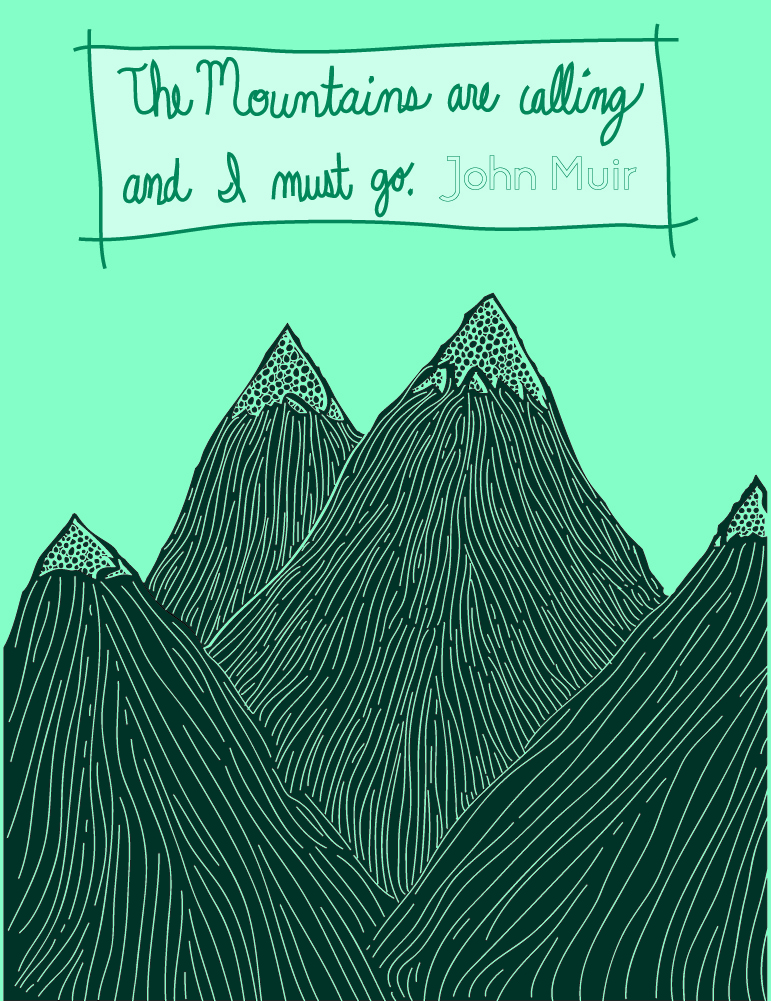 The Mountains are calling
and I must go. John Muir